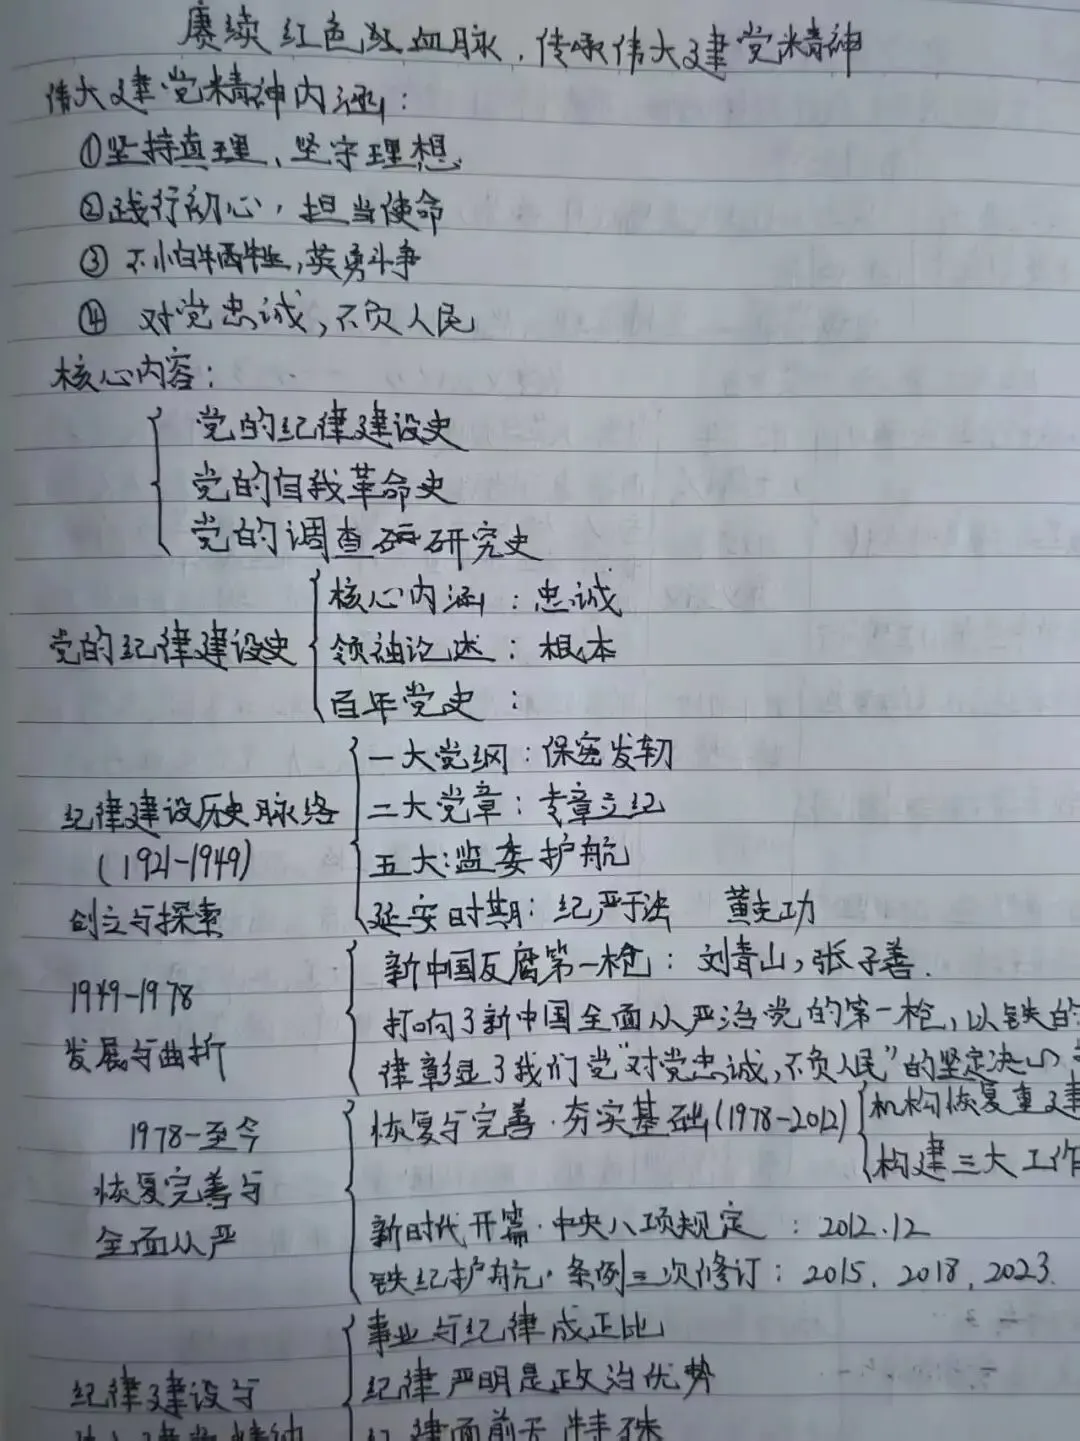 赓续红色红血脉,传承伟大建党精神
伟大建党精神内涵:
①坚持真理、坚守理想
②践行初心,担当使命
③不怕牺牲,英勇斗争
④对党忠诚,不负人民
核心内容:
党的纪律建设史
党的自我革命史
党的调查研究史
党的纪律建设史
核心内涵:忠诚
领袖论述:根本
百年党史:
纪律建设历史脉络
(1921-1949)
创立与探索
一大党纲:保密发轫
二大党章:专章立纪
五大:监委护航
延安时期:纪严于法 黄克功
1949-1978
发展与曲折
新中国反腐第一枪:刘青山,张子善.
打响了新中国全面从严治党的第一枪,以铁的
律彰显了我们党"对党忠诚,不负人民"的坚定决心
1978-至今
恢复完善与
全面从严
恢复与完善·夯实基础(1978-2012)
机构恢复重建
构建三大工作
新时代开篇·中央八项规定:2012.12
铁纪护航·条例三次修订:2015、2018、2023.
纪律建设与
事业与纪律成正比
纪律严明是政治优势